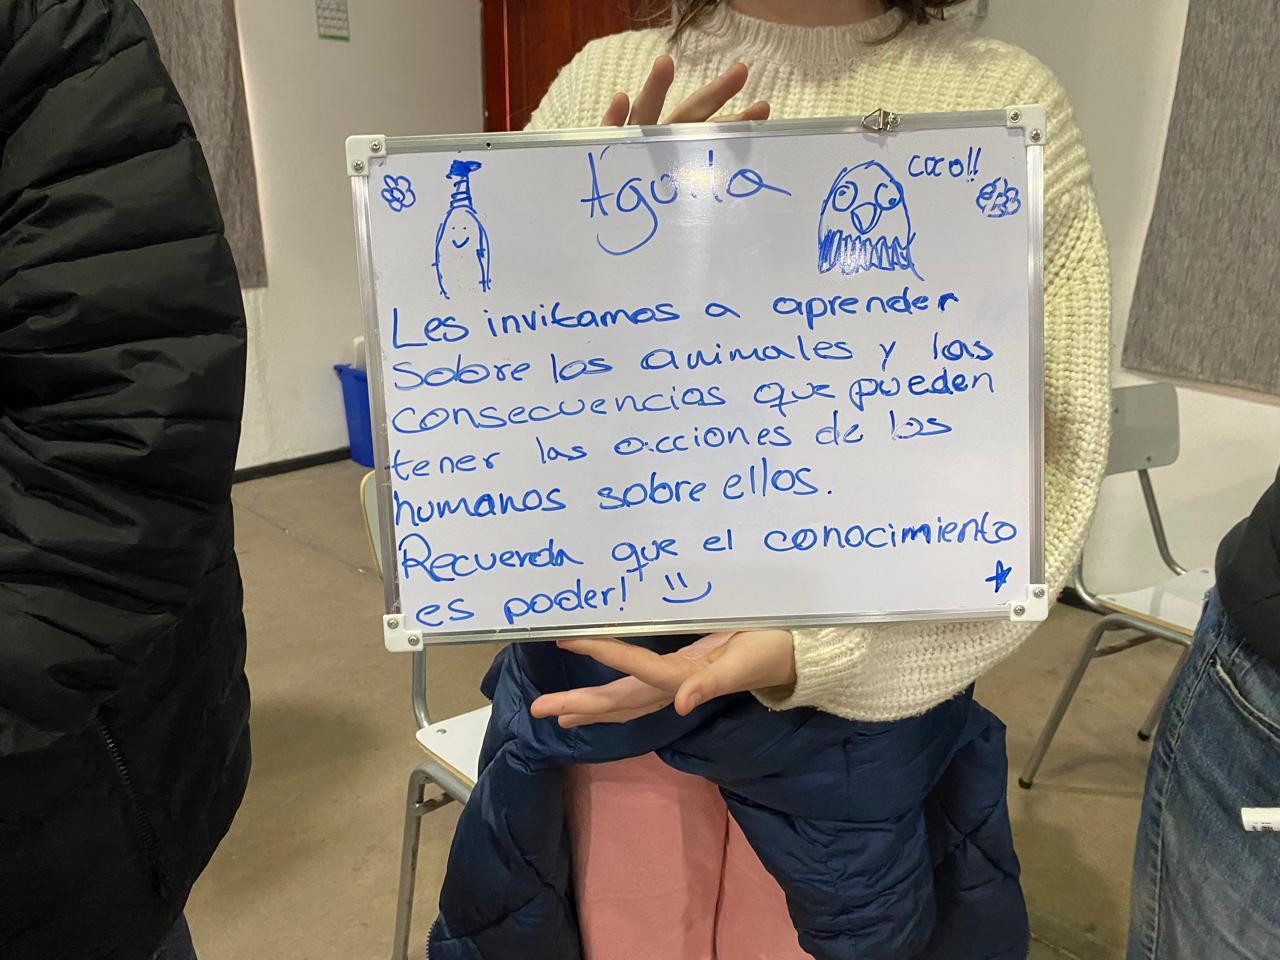 Águila
coco!!
Les invitamos a aprender
sobre los animales y las
consecuencias que pueden
tener las acciones de los
humanos sobre ellos.
Recuerda que el conocimiento
es poder!